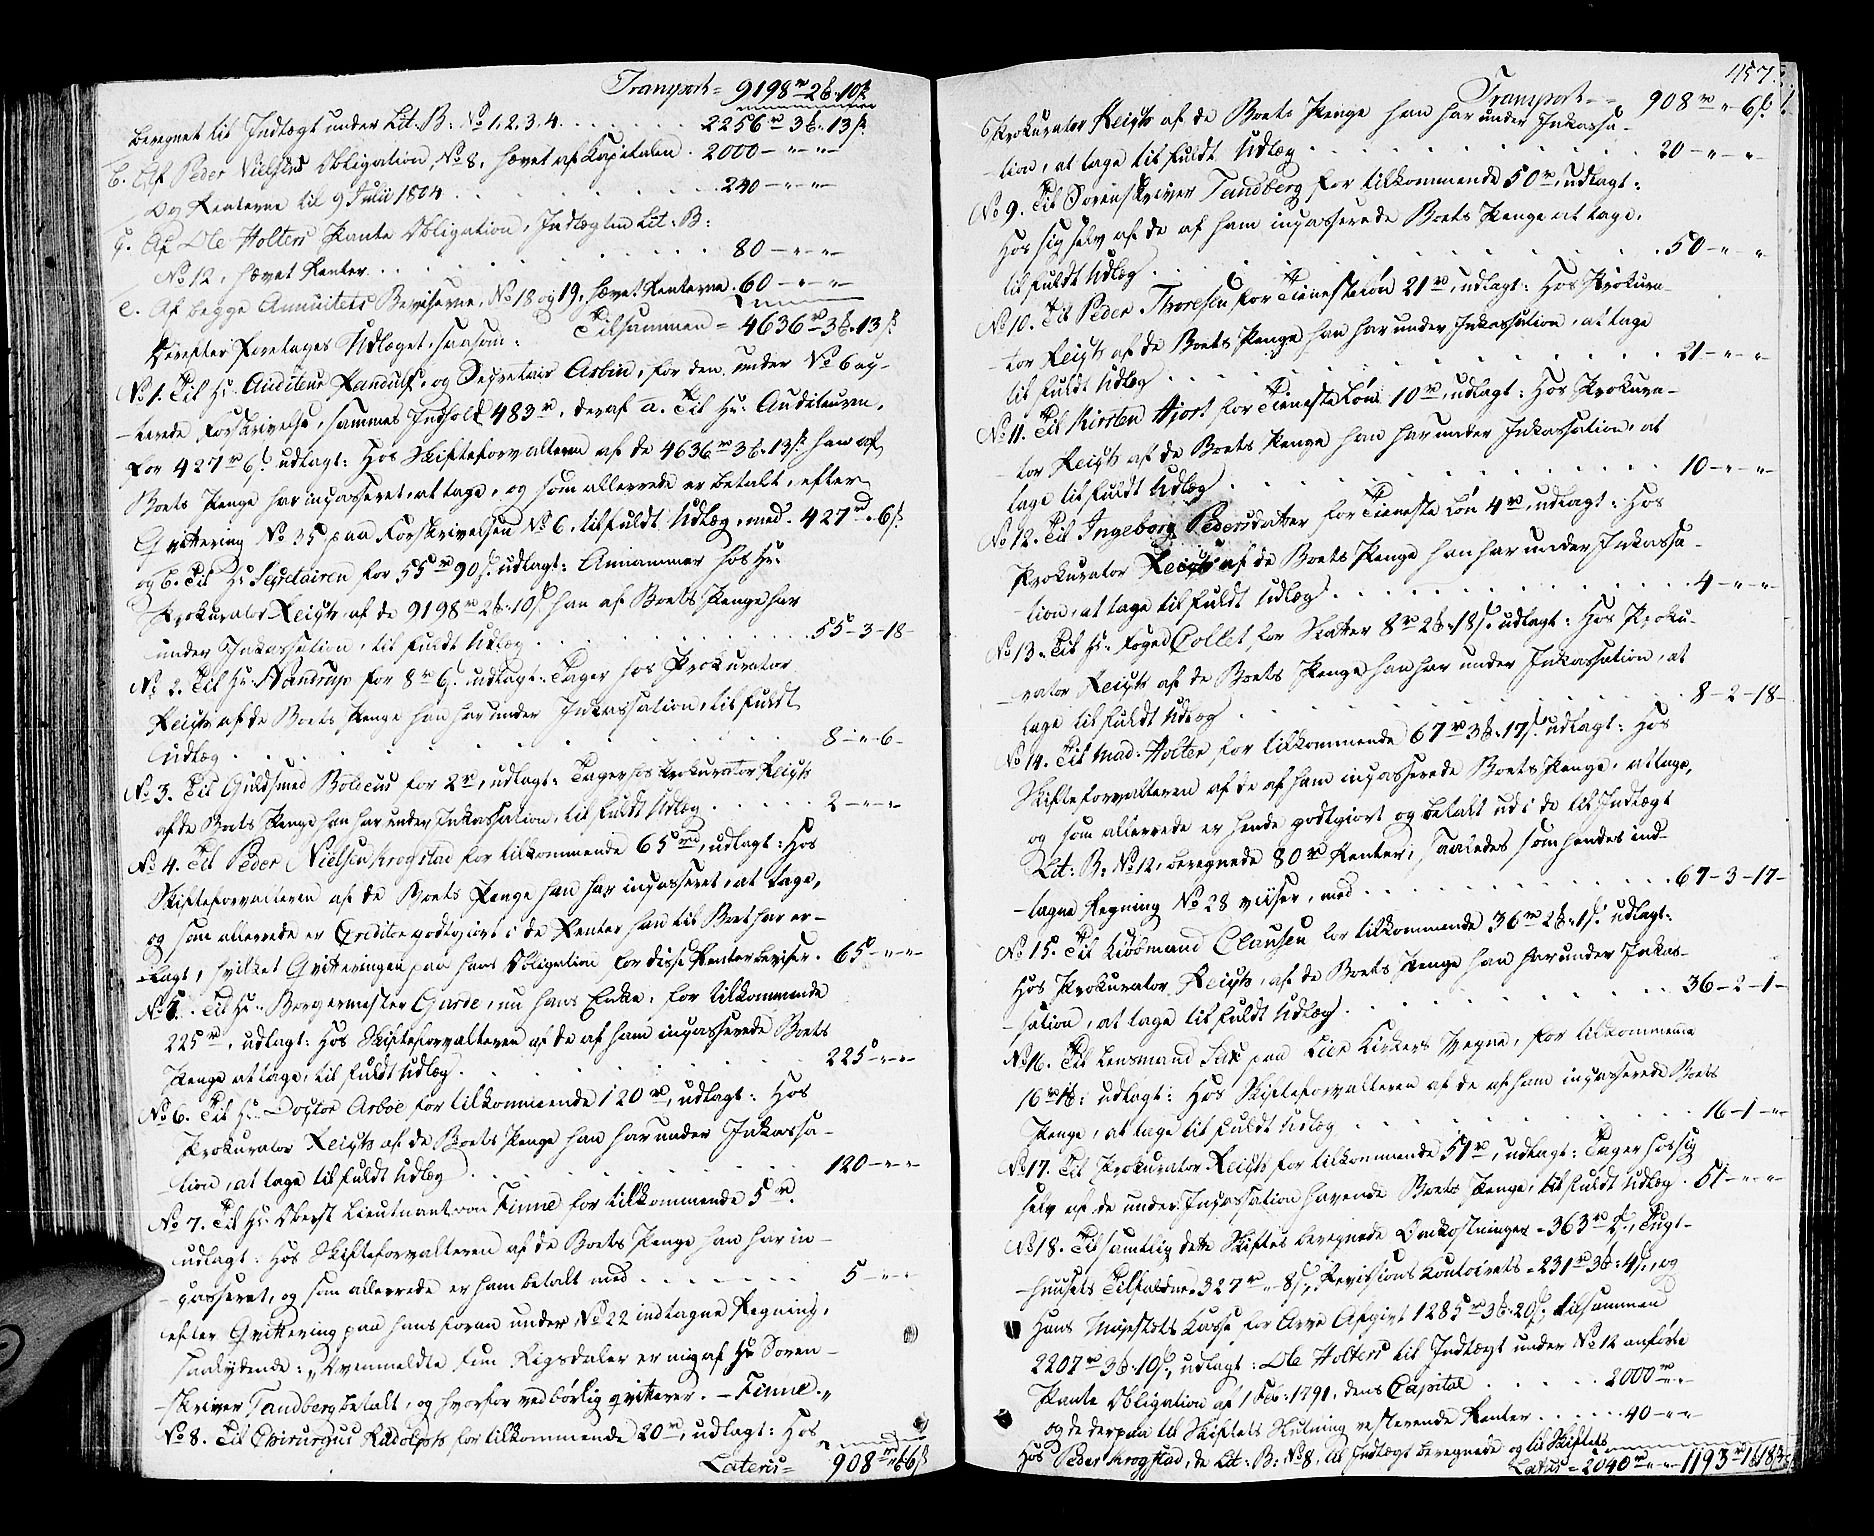 Transport = 9198 rd 2 ß 10 s
beregnet til Indtægt under Lit: B: No 1. 2. 3. 4. . . . . . . 2256 rd 3 ß 13 s.
b. Af Peder Nielsens Obligation, No 8, hævet af Kapitalen . 2000 – " – "
Og Renterne til 9 Junii 1804 . . . . . . 240 – " – "
Af Ole Holters Pante Obligation, Indtægten Lit: B:
No 12, hævet Renter . . . . . . 80 – " – "
e. Af begge Annuitets Beviserne, No 18 og 19, hævet Renterne . 60 – " – "
Tilsammen = 4636 rd 3 ß 13 s
Derefter foretages Udlæget, saasom:
No 1. Til Hr: Auditeur Randulf, og Secretair Arbin, for den, under No 6 an-
-terede Forskrivelse, sammes Indhold 483 rd, deraf a. Til Hr: Auditeuren,
for 427 rd 6 s udlagt: Hos Skifteforvalteren af de 4636 rd 3 ß 13 s han af
Boets Penge har incasseret, at tage, og som allerede er betalt, efter
Qvittering No 35 paa Forskrivelsen No 6, til fuldt Udlæg, med . 427 rd " 6 s.
og b. Til Hr: Secretairen for 55 rd 90 s. udlagt: Annammer hos Hr:
Prokurator Reigts, af de 9198 rd 2 ß 10 s han af Boets Penge har
under Inkassation, til fuldt Udlæg . . . . . . 55 – 3 – 18 –
No 2. Til Hr: Nandrup for 8 rd 6 s. udlagt: Tager hos Prokurator
Reigts af de Boets Penge han har under Inkassation, til fuldt
Udlæg . . . . . . 8 – " – 6 –
No 3. Til Guldsmed for 2 rd, udlagt: Tager hos Prokurator Reigts
af de Boets Penge han har under Inkassation, til fuldt Udlæg . . . . . 2 – " – "
No 4. Til Peder Nielsen Krogstad for tilkommende 65 rd, udlagt: Hos
Skifteforvalteren af de Boets Penge han har incasseret, at tage,
og som allerede er Creditor godtgiort i de Renter han til Boet har er-
-lagt, hvilket Qvitteringen paa hans Obligation for disse Renter beviser . 65 – " – "
No 5. Til Hr: Borgermester Garde, nu hans Enke, for tilkommende
225 rd, udlagt: Hos Skifteforvalteren af de af ham incasserede Boets
Penge at tage, til fuldt Udlæg . . . . . . 225 – " – "
No 6. Til Hr: Doctor Arboe for tilkommende 120 rd, udlagt: Hos
Prokurator Reigts af de Boets Penge han har under Inkassa-
-tion, at tage til fuldt Udlæg . . . . . . 120 – " – "
No 7. Til Hr: Oberst Lieutnant von Finne for tilkommende 5 rd.
udlagt: Hos Skifteforvalteren af de Boets Penge han har in-
-casseret, og som allerede er ham betalt med . . . . . . . 5 – " – "
efter Qvittering paa hans foran under No 22 indtagne Regning,
saalydende: "Ovenmeldte fem Rigsdaler er mig af Hr Soren-
-skriver Tandberg betalt, og hvorfor ved børlig qvitterer. – Finne."
No 8. Til Chirurgus Rudolph for tilkommende 20 rd, udlagt: Hos
Lateris = 908 rd " 6 s
457.
Transport = 908 rd " 6 s.
Prokurator Reigts af de Boets Penge han har under Inkassa-
-tion, at tage til fuldt Udlæg . . . . . . 20 – " – "
No 9. Til Sorenskriver Tandberg for tilkommende 50 rd, udlagt:
Hos sig selv af de af ham incasserede Boets Penge at tage,
til fuldt Udlæg . . . . . . 50 – " – "
No 10. Til Peder Thoresen for Tienesteløn 21 rd, udlagt: Hos Prokura-
-tor Reigts af de Boets Penge han har under Inkassation, at tage
til fuldt Udlæg . . . . . . 21 – " – "
No 11. Til Kirsten Hjort for Tieneste Løn 10 rd, udlagt: Hos Prokura-
-tor Reigts af de Boets Penge han har under Inkassation, at
tage til fuldt Udlæg . . . . . . 10 – " – "
No 12. Til Ingeborg Pedersdatter for Tieneste Løn 4 rd, udlagt: Hos
Prokurator Reigts af de Boets Penge han har under Inkassa-
-tion, at tage til fuldt Udlæg . . . . . . 4 – " – "
No 13. Til Hr: Foged Collet for Skatter 8 rd 2 ß 18 s. udlagt: Hos Proku-
-rator Reigts af de Boets Penge han har under Inkassation, at
tage til fuldt Udlæg . . . . . . 8 – 2 – 18 –
No 14. Til Mad: Holter for tilkommende 67 rd 3 ß 17 s. udlagt: Hos
Skifteforvalteren af de af ham incasserede Boets Penge, at tage,
og som allerede er hende godtgiort og betalt udi de til Indtægt
Lit: B: No 12, beregnede 80 rd Renter, saaledes som hendes ind-
-tagne Regning No 28 viiser, med . . . . . . 67 – 3 – 17 –
No 15. Til Kiøbmand Clausen for tilkommende 36 rd 2 ß 1 s. udlagt:
Hos Prokurator Reigts, af de Boets Penge han har under Inkas-
-sation, at tage til fuldt Udlæg . . . . . . 36 – 2 – 1 –
No 16. Til Lensmand paa Lier Kirkers Vegne, for tilkommende
16 rd 1 ß: udlagt: Hos Skifteforvalteren af de af ham incasserede Boets
Penge, at tage til fuldt Udlæg . . . . . . 16 – 1 – "
No 17. Til Prokurator Reigts for tilkommende 51 rd, udlagt: Tager hos sig
selv af de under Incassation havende Boets Penge, til fuldt Udlæg . 51 – " – "
No 18. Til samtlig dette Skiftes beregnede Omkostninger = 363 rd, Tugt-
-huusets Tilfaldne 327 rd " 8 s, Revisions Contoirets = 231 rd 3 ß 4 s., og
Hans Majestets Casse for Arve Afgivt 1285 rd 3 ß 20 s. tilsammen
2207 rd 3 ß 10 s., udlagt: Ole Holters til Indtægt under No 12 anførte
Pante Obligation af 1 Feb: 1791, dens Capital . . . . . 2000 rd " – "
og de derpaa til Skiftets Slutning resterende Renter . . . . . 40 – " – "
Hos Peder Krogstad, de Lit: B: No 8, til Indtægt beregnede og til Skiftets
Latus = 2040 rd " – " 1193 rd 1 ß 18 s